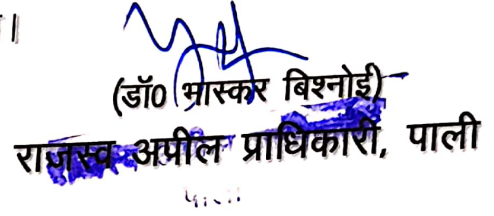 ।
(डॉ0 भास्कर बिश्नोई)
राजस्व अपील प्राधिकारी, पाली